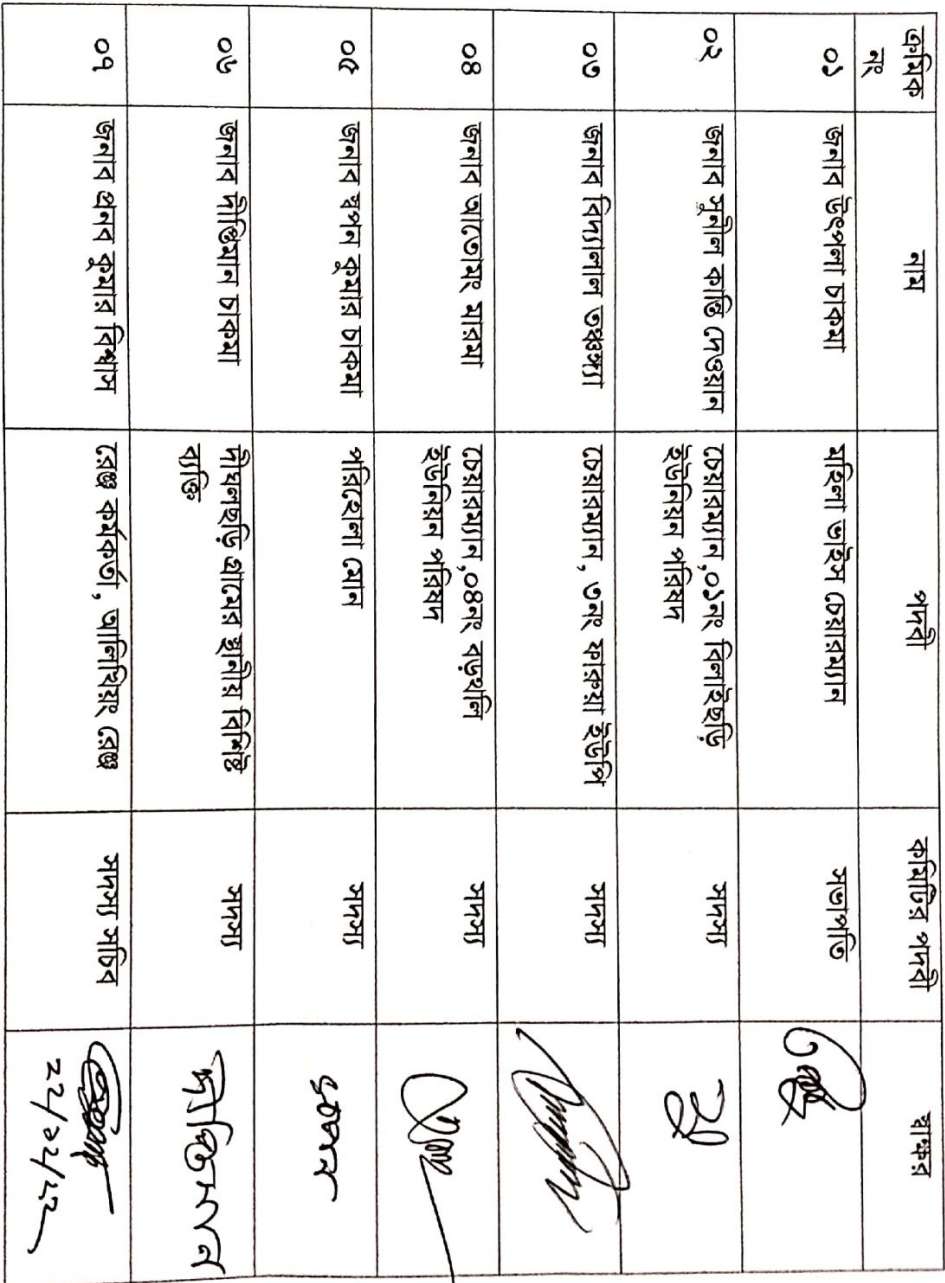 ক্রমিক নং | নাম | পদবী | কমিটির পদবী | স্বাক্ষর
০১ | জনাব উৎপলা চাকমা | মহিলা ভাইস চেয়ারম্যান | সভাপতি
০২ | জনাব সুনীল কান্তি দেওয়ান | চেয়ারম্যান,০১নং বিলাইছড়ি
ইউনিয়ন পরিষদ | সদস্য | সু
০৩ | জনাব বিদ্যালাল তঞ্চঙ্গ্যা | চেয়ারম্যান, ৩নং ফারুয়া ইউপি | সদস্য
০৪ | জনাব আতোমং মারমা | চেয়ারম্যান,০৪নং বড়থলি
ইউনিয়ন পরিষদ | সদস্য
০৫ | জনাব স্বপন কুমার চাকমা | পরিহেলা মোন | সদস্য | স্বপন
০৬ | জনাব দীপ্তিমান চাকমা | দীঘলছড়ি গ্রামের স্থানীয় বিশিষ্ট
ব্যক্তি | সদস্য | দীপ্তিমান
০৭ | জনাব প্রনব কুমার বিশ্বাস | রেঞ্জ কর্মকর্তা, আলিখিয়ং রেঞ্জ | সদস্য সচিব